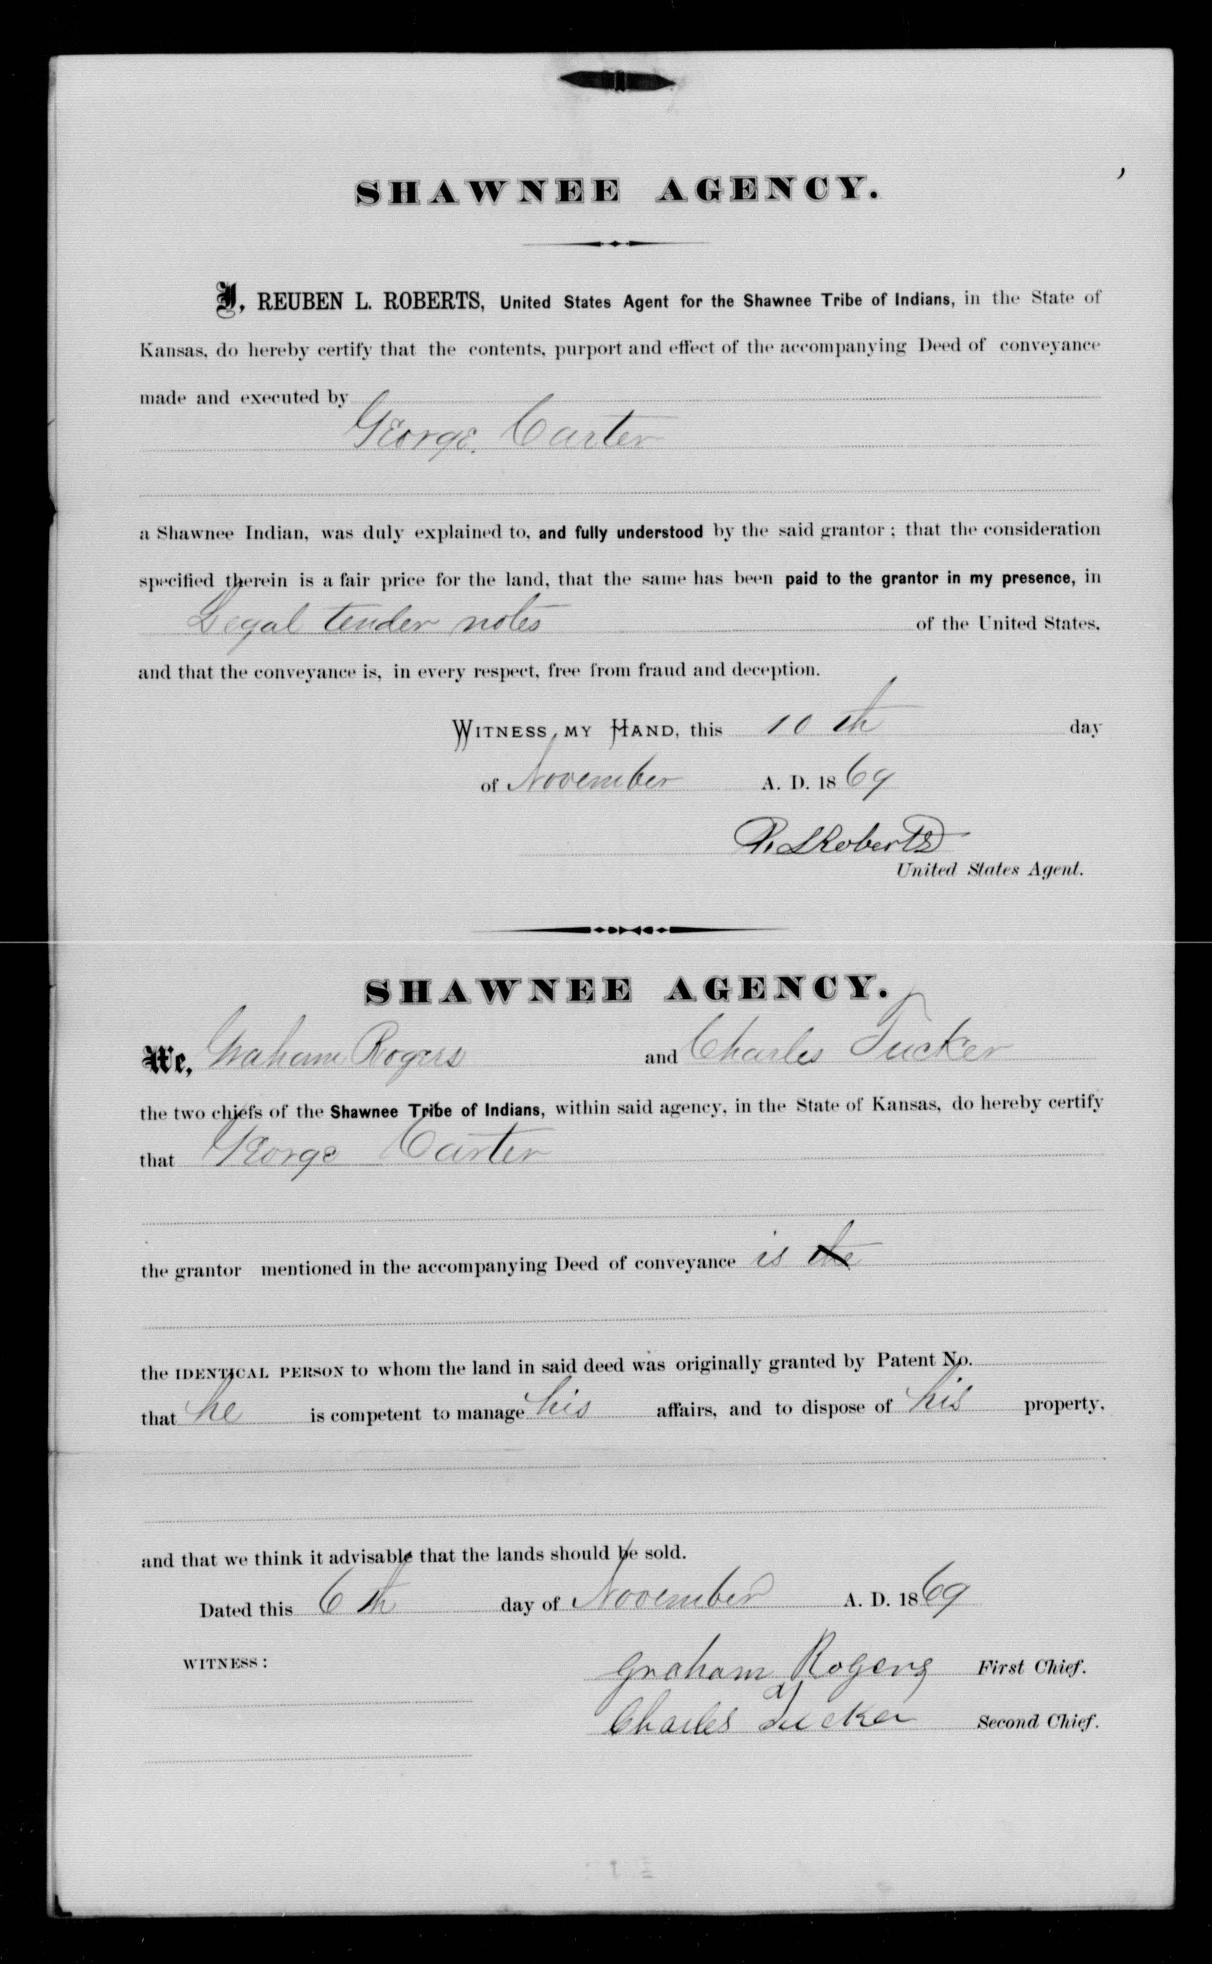 SHAWNEE AGENCY.
I, REUBEN L. ROBERTS, United States Agent for the Shawnee Tribe of Indians, in the State of
Kansas, do hereby certify that the contents, purport and effect of the accompanying Deed of conveyance
made and executed by
George Carter
a Shawnee Indian, was duly explained to, and fully understood by the said grantor; that the consideration
specified therein is a fair price for the land, that the same has been paid to the grantor in my presence, in
Legal tender notes of the United States,
and that the conveyance is, in every respect, free from fraud and deception.
WITNESS MY HAND, this 10th day
of November A. D. 1869
R. L Roberts
United States Agent.
SHAWNEE AGENCY.
We, Graham Rogers and Charles Tucker
the two chiefs of the Shawnee Tribe of Indians, within said agency, in the State of Kansas, do hereby certify
that George Carter
the grantor mentioned in the accompanying Deed of conveyance is the
the IDENTICAL PERSON to whom the land in said deed was originally granted by Patent No.
that he is competent to manage his affairs, and to dispose of his property,
and that we think it advisable that the lands should be sold.
Dated this 6th day of November A. D. 1869
WITNESS:
Graham Rogers First Chief.
Charles Tucker Second Chief.